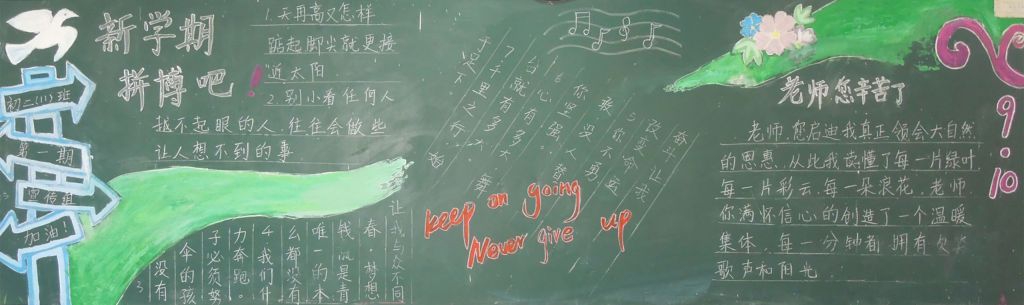 初二(11)班
第一期
雪信组
加油!
新学期
拼搏吧!
1.天再高又怎样
踮起脚尖就更接
近太阳
2.别小看任何人
越不起眼的人.往往会做些
让人想不到的事.
3
没有
伞的孩
子必须努
力奔跑。
4.我们什
么都没有
唯一的本
钱就是青
春.梦想
让我与众不同
奋斗让我
改变命运
5
你不勇敢
没
6.你坚强.
心有多大.舞
台就有多大.
7.千里之行.始
于足下.
keep on going
Never give up
老师您辛苦了
老师.您启迪我真正领会大自然
的恩惠.从此我读懂了每一片绿叶
每一片彩云.每一朵浪花.老师
你满怀信心的创造了一个温暖
集体.每一分钟都拥有欢笑
歌声和阳光.
9.10